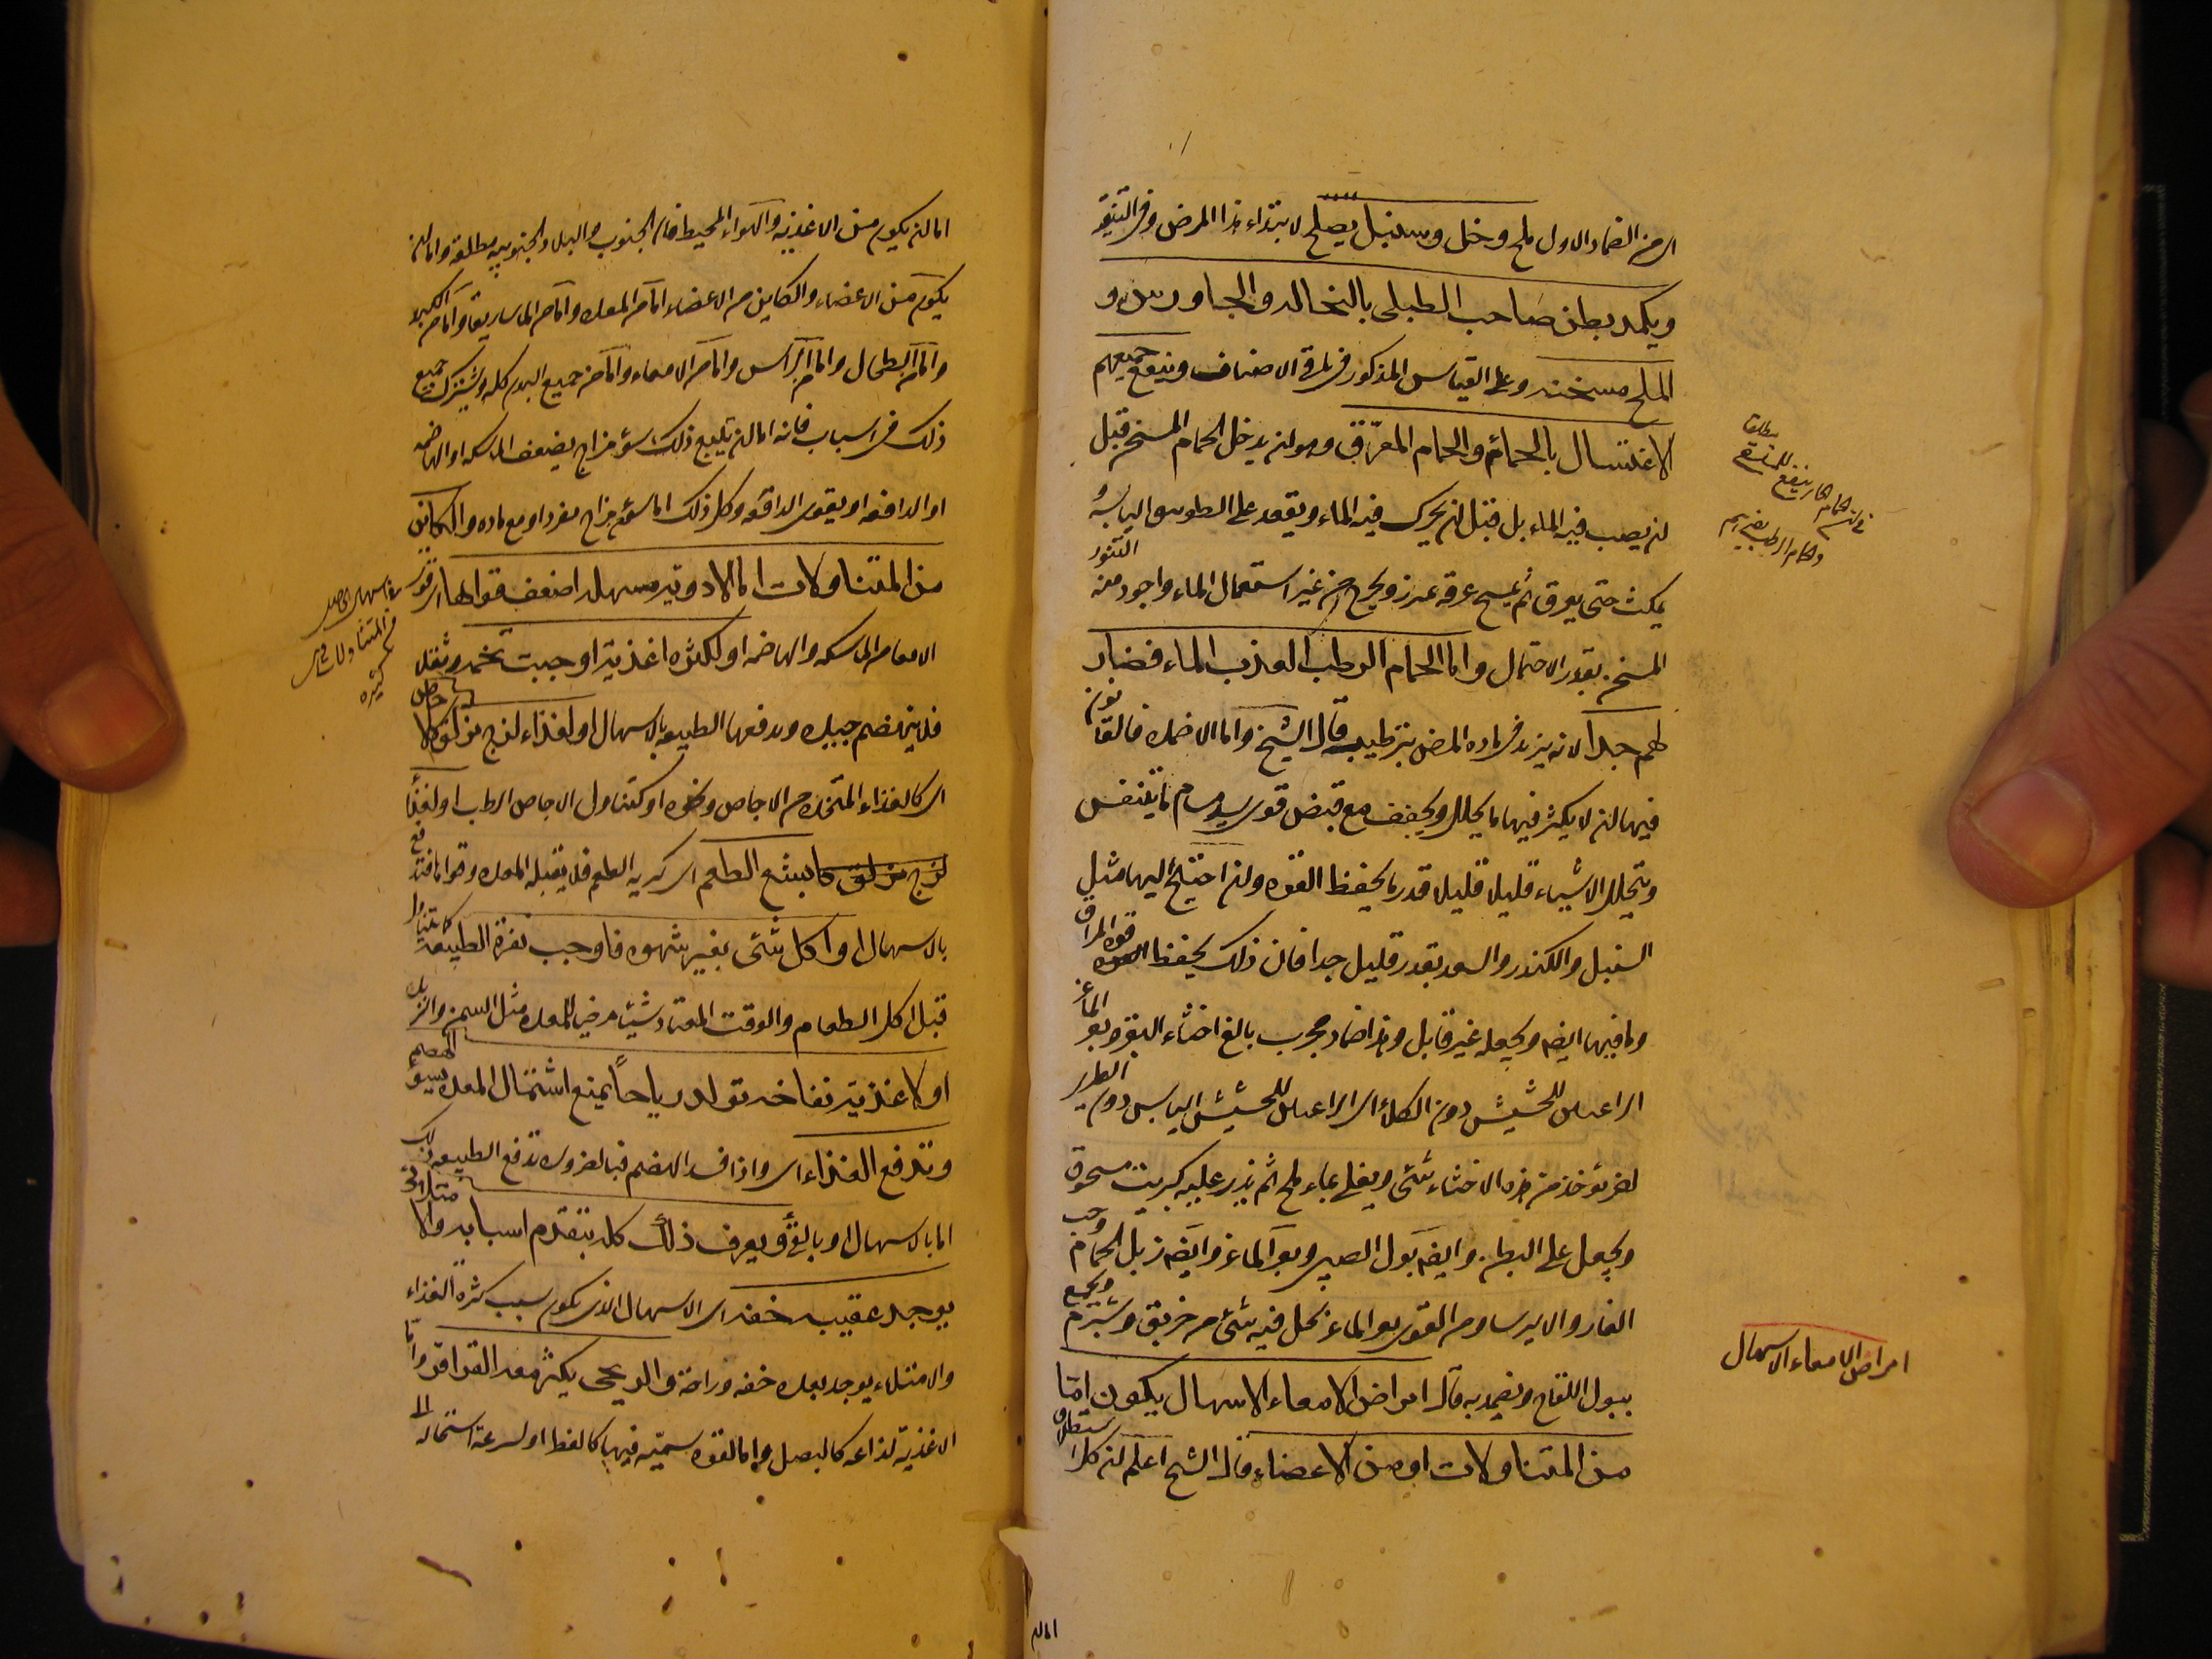 من الضماد الاول ملح وخل وسنبل يصلح لابتداء هذا المرض وفى التنقية
ويكمد بطن صاحب الطبلى بالنخاله والجاورس و
الملح مسخنه وعلى القياس المذكور فى باقى الاصناف وينفع جميعهم
الاغتسال بالحمائم والحمام المعرّق وهو ان يدخل الحمام المسخن قبل
ان يصب فيه الماء بل قبل ان يحرك فيه الماء ويقعد على الطوس اليابسه و
يمكث حتى يعرق ثم يمسح عرقه ويخرج من غير استعمال الماء واجود منه التنور
المسخن بقدر الاحتمال واما الحمام الرطب العذب الماء فضار
لهم جدا لانه يزيد فى ماده المرض بترطيبه قال الشيخ واما الاضمده فالقانون
فيها ان لا يكثر فيها ما يحلل ويجفف مع قبض قوى يسد مسام ما يتنفس
ويتحلل الاشياء قليلا قليلا قدر ما يحفظ القوه وان احتيج اليها مثل
السنبل والكندر والسعد بقدر قليل جدا فان ذلك يحفظ قوه المراق
وما فيها ايضه ويجعله غير قابل وهذا ضماد مجرب بالغ اخثاء البقر وبعر الماعز
الراعى للحشيش دون الكلأ اى الراعى للحشيش اليابس دون الطرى
يؤخذ من هذه الاخثاء شئ ويغلى بماء ملح ثم يذر عليه كبريت مسحوق
ويجعل على البطن وايضه بول الصبى وبعر الماعز وايضه زبل الحمام وحب
الغار والايرسا ومن القوى بعر الماعز يجعل فيه شئ من خربق وشبرم ويجمع
ببول اللقاح ويضمد به قال امراض الامعاء الاسهال يكون امّا
من المتناولات او من الاعضاء قال الشيخ اعلم ان كل استطلاق
مطلقا
فى ان الحمام الحار ينفع للمستسقى
والحمام الرطب يضرهم
امراض الامعاء الاسهال
اما ان
اما ان يكون من الاغذيه والهواء المحيط فان الجنوب والبلاد الجنوبيه مطلقه واما ان
يكون من الاعضاء والكاين من الاعضاء اما من المعده واما من الماساريقا واما من الكبد
واما من الطحال واما من الرأس واما من الامعاء واما من جميع البدن كله ويشترك جميع
ذلك فى اسباب فانه اما ان يتبع ذلك سؤ مزاج يضعف الماسكه او الهاضمه
او الدافعه او يقوى الدافعه وكل ذلك اما سؤ مزاج مفرد او مع ماده والكاين
من المتناولات اما لادوية مسهله اضعف قواها اى قوى
الامعاء الماسكه والهاضمه او لكثره اغذية اوجبت تخمه وثقلا
فلا ينهضم جيده ويدفعها الطبيعه بالاسهال او لغذاء لزج مزلق كالاجاص
اى كالغذاء المتخذ من الاجاص ونحوه او كتناول الاجاص الرطب او لغذاء
لزج مزلق كا بشع الطعم اى كريه الطعم فلا يقبله المعده وقواها فتدفع
بالاسهال او اكل شئ بغير شهوه فاوجب نفرة الطبيعه كا تناول
قبل اكل الطعام والوقت المعتاد شيئا مرخيا للمعده مثل السمن والزبد
او لاغذية نفاخه تولد رياحاً يمنع اشتمال المعده فيسوء الهضم
وتدفع الغذاء اى واذا فسد الهضم فبالضروره تدفع الطبيعه ذلك
اما بالاسهال او بالقئ ويعرف ذلك كله بتقدم اسبابه والامتلائى
يوجد عقيبه خفه اى الاسهال الذى يكون سبب كثره الغذاء
والامتلاء يوجد بعده خفه وراحه والريحى يكثر معه القراقر واما
الاغذية لذاعه كالبصل واما لقوه سميّه فيها كالفطر او لسرعة استحاله الى
فى اسهال الحاصل
من المتناولات
كثيره